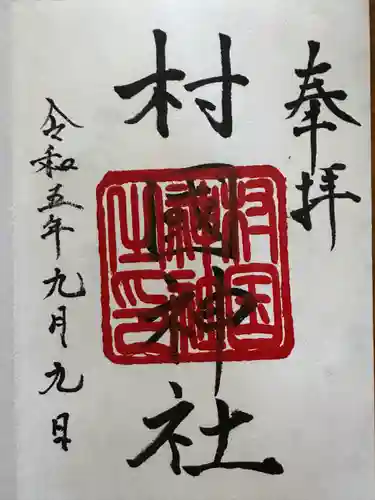 奉拝
村国神社
村国
神社神
之印
令和五年九月九日